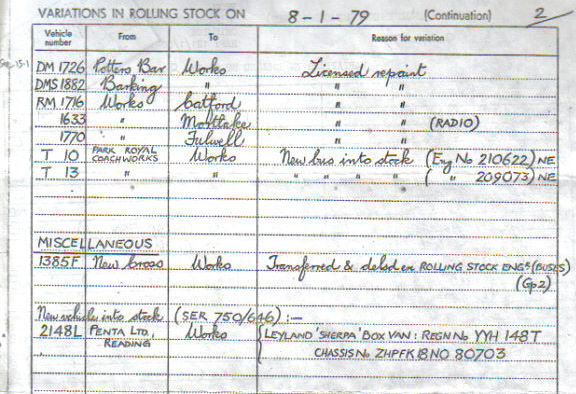 VARIATIONS IN ROLLING STOCK ON 8-1-79 (Continuation) 2
Vehicle number From To Reason for variation
DM 1726 Potters Bar Works Licensed repaint
DMS 1882 Barking " " "
RM 1716 Works Catford " "
1633 " Mortlake " " (RADIO)
1770 " Fulwell " "
T 10 PARK ROYAL COACHWORKS Works New bus into stock (Eng No 210622) NE
T 13 " " " " " " ( " 209073) NE
MISCELLANEOUS
1385F New Cross Works Transferred & debsd en ROLLING STOCK ENGR (BUSES)
(Gp2)
New vehicle into stock (SER 750/646) :-
2148L PENTA LTD, Works LEYLAND 'SHERPA' BOX VAN : REGN No YYH 148T
READING CHASSIS No ZHPFK18NO 80703